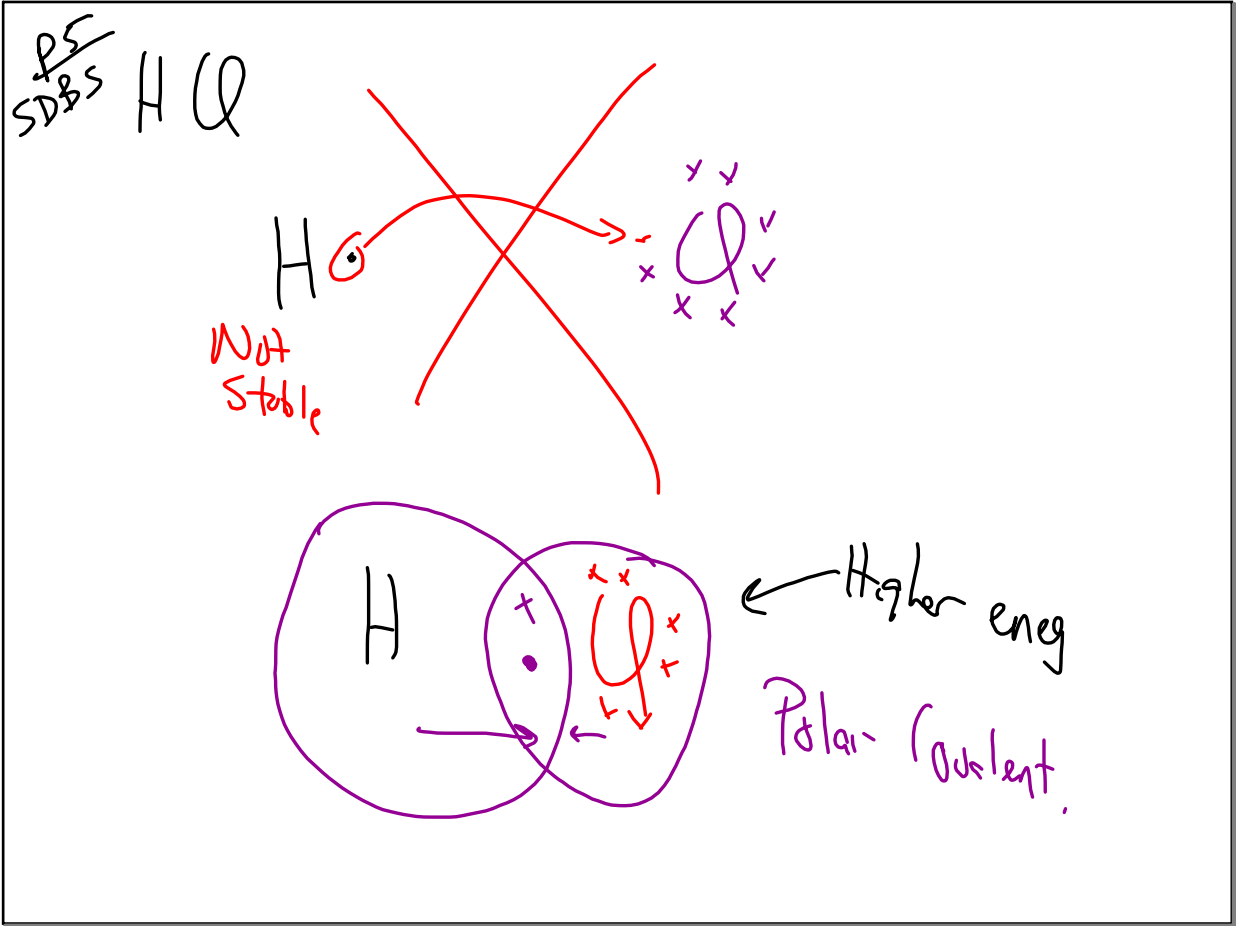 P5
SDBS
HCl
H
Cl
Not
Stable
H
Cl
Higher eneg
Polar Covalent.